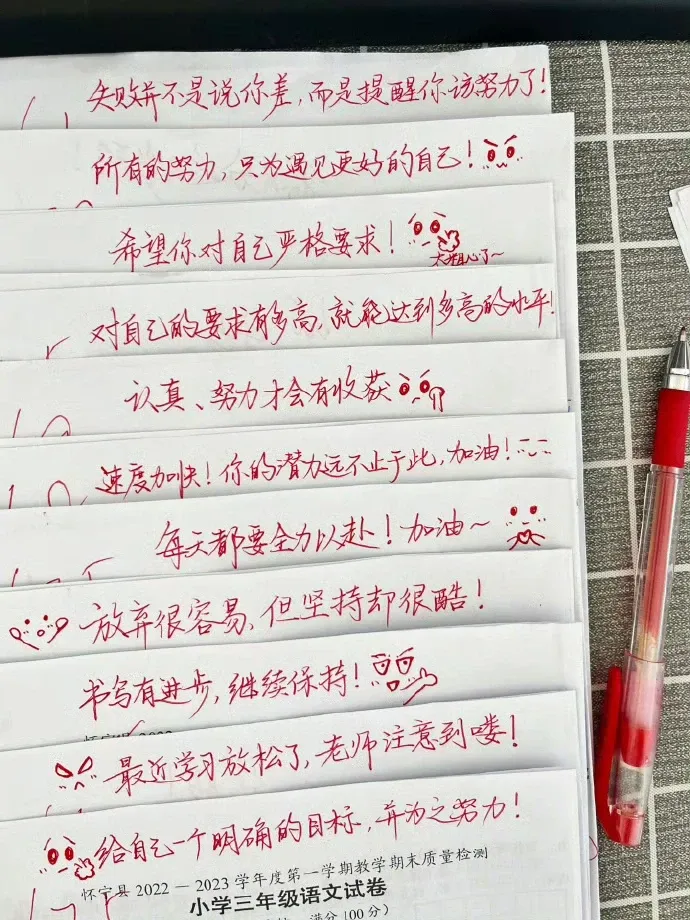 失败并不是说你差，而是提醒你该努力了！
所有的努力，只为遇见更好的自己！
希望你对自己严格要求！
太粗心了～
对自己的要求有多高，就能达到多高的水平！
认真、努力才会有收获
速度加快！你的潜力远不止于此，加油！
每天都要全力以赴！加油～
放弃很容易，但坚持却很酷！
书写有进步，继续保持！
最近学习放松了，老师注意到喽！
给自己一个明确的目标，并为之努力！
怀宁县 2022—2023 学年度第一学期教学期末质量检测
小学三年级语文试卷
满分 100 分）